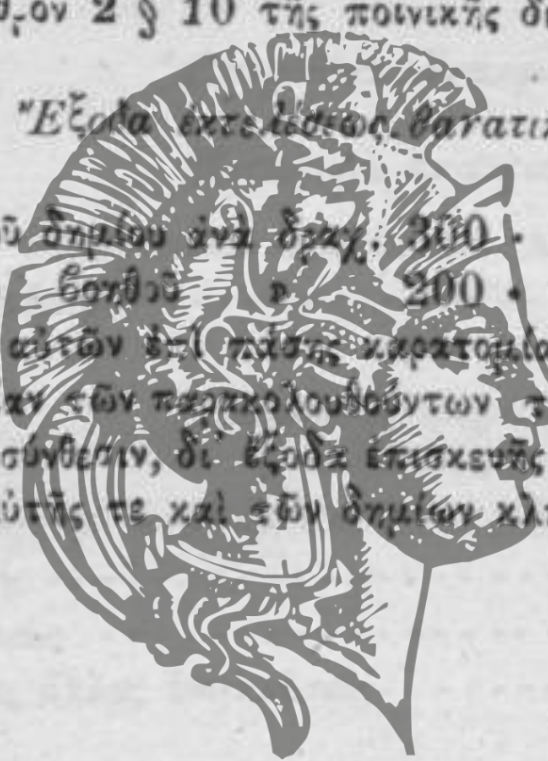 θρον 2 § 10 τῆς ποινικῆς δι
Ἔξοδα ἐκτελέσεως θανατικ
οῦ δημίου ἀνὰ δραχ. 300 .
βοηθοῦ » 200 .
αὐτῶν ἐπὶ πάσης καρατομία
αν τῶν παρακολουθούντων τ
σύνθεσιν, δι' ἔξοδα ἐπισκευῆς
αὐτῆς τε καὶ τῶν δημίων κλ